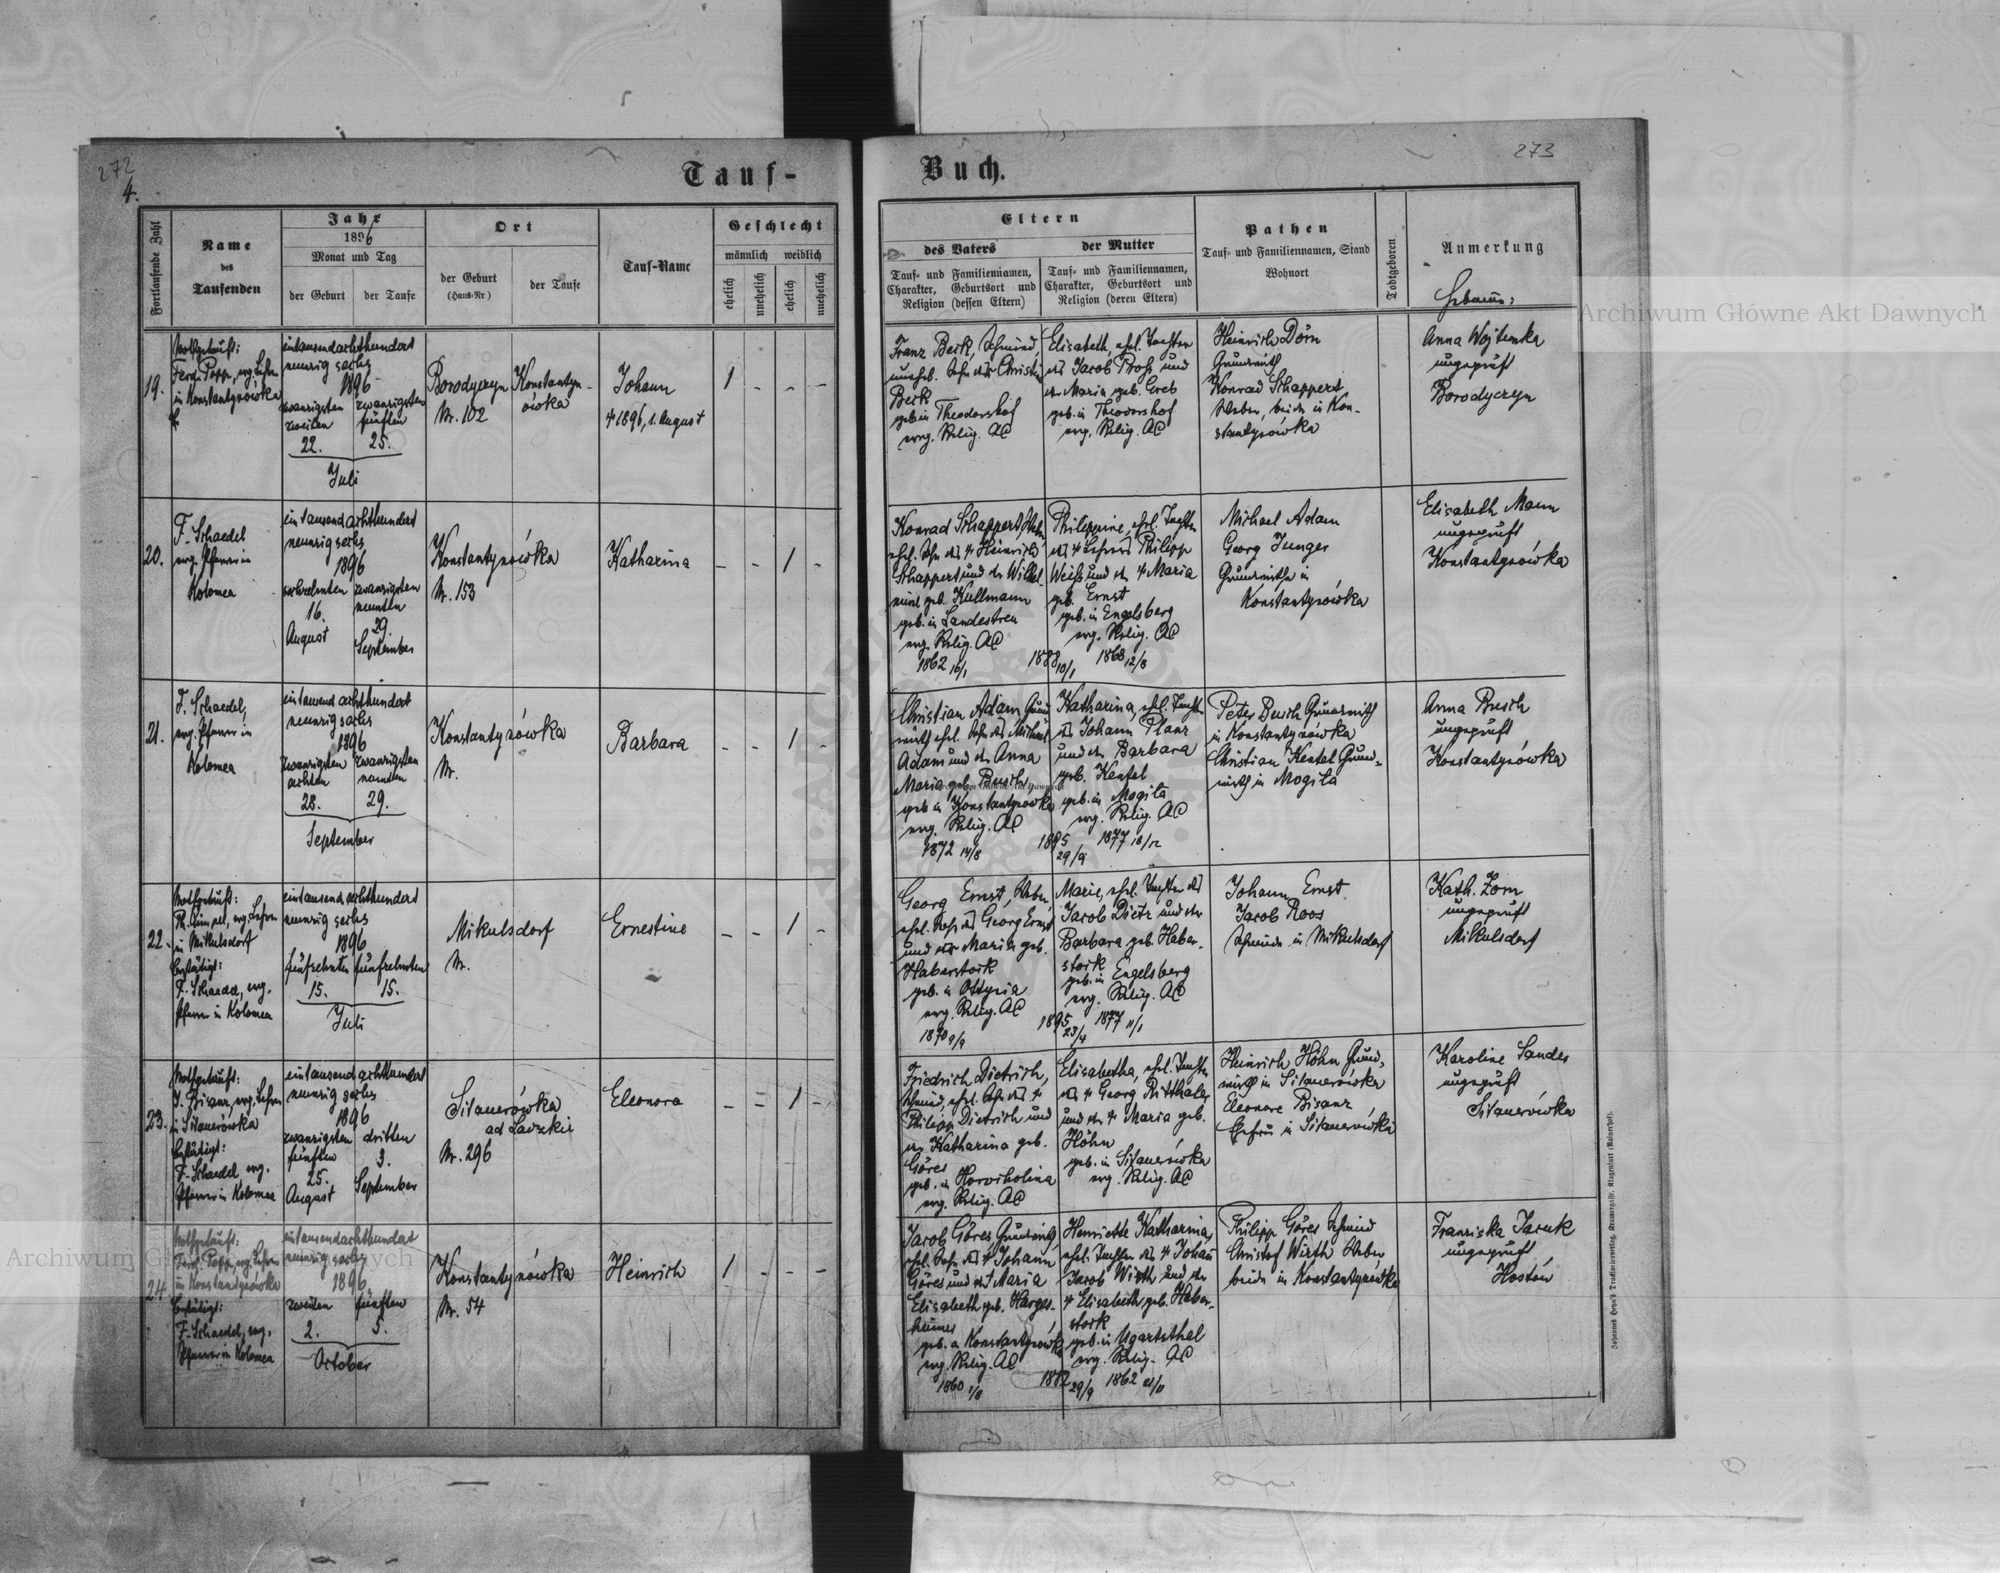 272
4.
Tauf-
Fortlaufende Zahl
Name
des
Taufenden
Jahr
1896
Monat und Tag
der Geburt
der Taufe
Ort
der Geburt
(Haus-Nr)
der Taufe
Tauf-Name
Geschlecht
männlich
weiblich
ehelich
unehelich
ehelich
unehelich
19.
Nothgetauft:
Ferd. Popp, evg. Lehrer
in Konstantynówka
eintausendachthundert
neunzig sechs
1896
zwanzigsten
zweiten
22.
zwanzigsten
fünften
25.
Juli
Borodyczyn
Nr. 102
Konstantyn-
ówka
Johann
† 1896, 1. August
1 - - -
20.
F. Schaedel
evg. Pfarrer in
Kolomea
eintausend achthundert
neunzig sechs
1896
sechzehnten
16.
August
zwanzigsten
neunten
29
September
Konstantynówka
Nr. 153
Katharina
- - 1 -
21.
F. Schaedel,
evg. Pfarrer in
Kolomea
eintausend achthundert
neunzig sechs
1896
zwanzigsten
achten
28.
zwanzigsten
neunten
29.
September
Konstantynówka
Nr.
Barbara
- - 1 -
22.
Nothgetauft:
evg. Lehrer
in Mikulsdorf
bestätigt:
F. Schaedel, evg.
Pfarrer in Kolomea
eintausend achthundert
neunzig sechs
1896
fünfzehnten
15.
fünfzehnten
15.
Juli
Mikulsdorf
Nr.
Ernestine
- - 1 -
23.
Nothgetauft:
J. Bisanz, evg. Lehrer
in Sitauerówka
bestätigt:
F. Schaedel, evg.
Pfarrer in Kolomea
eintausend achthundert
neunzig sechs
1896
zwanzigsten
fünften
25.
August
dritten
3.
September
Sitauerówka
ad Ladzkie
Nr. 296
Eleonora
- - 1 -
24.
Nothgetauft:
Ferd. Popp, evg. Lehrer
in Konstantynówka
bestätigt:
F. Schaedel, evg.
Pfarrer in Kolomea
eintausendachthundert
neunzig sechs
1896
zweiten
2.
fünften
5.
October
Konstantynówka
Nr. 54
Heinrich
1 - - -
273
Buch.
Eltern
des Vaters
Tauf- und Familiennamen,
Charakter, Geburtsort und
Religion (dessen Eltern)
der Mutter
Tauf- und Familiennamen,
Charakter, Geburtsort und
Religion (deren Eltern)
Pathen
Tauf- und Familiennamen, Stand
Wohnort
Todtgeboren
Anmerkung
Hebamme:
Franz Beck, Schmied,
unehel. Sohn der Christine
Beck
geb. in Theodorshof
evg. Relig. AC
Elisabeth, ehel. Tochter
des Jacob Proß und
der Maria geb. Greb
geb. in Theodorshof
evg. Relig. AC
Heinrich Dörn
Grundwirth
Konrad Schappert
Weber, beide in Kon-
stantynówka
Anna Wojtenka
ungeprüft
Borodyczyn
Konrad Schappert, Weber
ehel. Sohn des † Heinrich
Schappert und der Wilhel-
mine geb. Kullmann
geb. in Landestreu
evg. Relig. AC
1862 16/1
1888 10/1
Philippine, ehel. Tochter
des † Lehrers Philipp
Weiß und der † Maria
geb. Ernst
geb. in Engelsberg
evg. Relig. AC
1868 12/8
Michael Adam
Georg Junger
Grundwirthe in
Konstantynówka
Elisabeth Mann
ungeprüft
Konstantynówka
Christian Adam Grund-
wirth ehel. Sohn des Michael
Adam und der Anna
Maria geb. Busch
geb. in Konstantynówka
evg. Relig. AC
1872 14/8
1895
29/9
Katharina, ehel. Tochter
des Johann Plaar
und der Barbara
geb. Kentel
geb. in Mogila
evg. Relig. AC
1877 18/12
Peter Busch Grundwirth
in Konstantynówka
Christian Kentel Grund-
wirth in Mogila
Anna Busch
ungeprüft
Konstantynówka
Georg Ernst, Weber,
ehel. Sohn des Georg Ernst
und der Maria geb.
Haberstock
geb. in Ottynia
evg. Relig. AC
1870 9/9
1895
23/4
Marie, ehel. Tochter des
Jacob Dietz und der
Barbara geb. Haber-
stock
geb. in Engelsberg
evg. Relig. AC
1877 11/1
Johann Ernst
Jacob Roos
Schmiede in Mikulsdorf
Kath. Zorn
ungeprüft
Mikulsdorf
Friedrich Dietrich,
Schmied, ehel. Sohn des †
Philipp Dietrich und
der Katharina geb.
Göres
geb. in Horocholina
evg. Relig. AC
Elisabetha, ehel. Tochter
des † Georg Ritthaler
und der † Maria geb.
Höhn
geb. in Sitauerówka
evg. Relig. AC
Heinrich Höhn Grund-
wirth in Sitauerówka
Eleonore Bisanz
Ehefrau in Sitauerówka
Karoline Sander
ungeprüft
Sitauerówka
Jacob Göres Grundwirth,
ehel. Sohn des † Johann
Göres und der † Maria
Elisabeth geb. Harges-
heimer
geb. in Konstantynówka
evg. Relig. AC
1860 1/8
1882
29/9
Henriette Katharina,
ehel. Tochter des † Johann
Jacob Wirth und der
† Elisabeth geb. Haber-
stock
geb. in Ugartsthal
evg. Relig. AC
1862 21/11
Philipp Göres Schmied
Christof Wirth Weber
beide in Konstantynówka
Franziska Jacuk
ungeprüft
Hostów
Archiwum Główne Akt Dawnych
Archiwum Główne Akt Dawnych